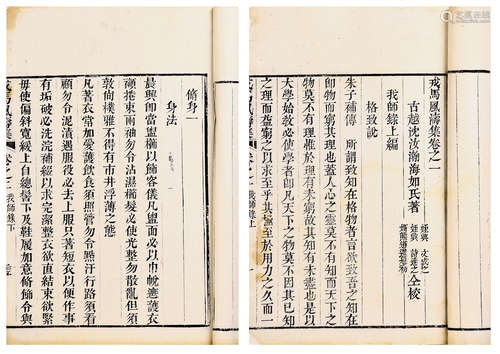 戎馬風濤集卷之一
古越沈汝瀚海如氏著
仝校
我師錄上編
格致說
朱子補傳 所謂致知在格物者言欲致吾之知在
卽物而窮其理也蓋人心之靈莫不有知而天下之
物莫不有理惟於理有未窮故其知有未盡也是以
大學始敎必使學者卽凡天下之物莫不因其已知
之理而益窮之以求至乎其極至於用力之久而一
我師錄上
脩身一
身法
晨興卽當盥櫛以飾容儀凡盥面必以巾帨遮護衣
領捲束兩袖勿令沾濕櫛髮必使光整勿散亂但須
敦尚樸雅不得有市井浮薄之態
凡著衣常加愛護飲食須照管勿令點汙行路須看
顧勿令泥漬遇服役必去上服只著短衣以便作事
有垢破必洗浣補綴以求完潔整衣欲直結束欲緊
毋使偏斜寬緩上自總髻下及鞋履加意脩飾令與
戎馬風濤集 我師錄下